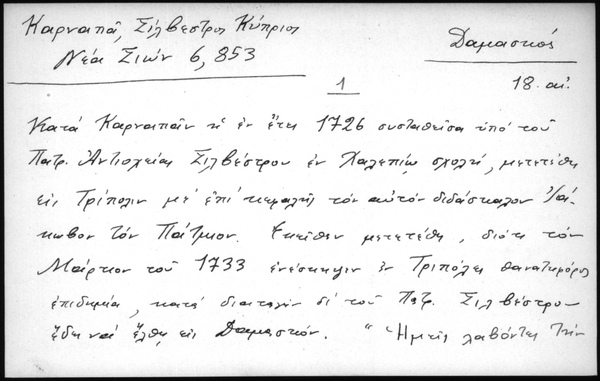 Καρναπᾶ, Σίλβεστρος Κύπριος
Νέα Σιών 6, 853
Δαμασκός
1
18. αἰ.
Κατά Καρναπᾶν ἡ ἐν ἔτει 1726 συσταθεῖσα ὑπό τοῦ
Πατρ. Ἀντιοχείας Σιλβέστρου ἐν Χαλεπίῳ σχολή, μετετέθη
εἰς Τρίπολιν μέ ἐπί κεφαλῆς τόν αὐτόν διδάσκαλον Ἰά-
κωβον τόν Πάτμιον. Ἐκεῖθεν μετετέθη, διότι τόν
Μάρτιον τοῦ 1733 ἐνέσκηψεν ἐν Τριπόλει θανατηφόρος
ἐπιδημία, κατά διαταγήν δέ τοῦ Πατρ. Σιλβέστρου
ἔδει νά ἔλθῃ εἰς Δαμασκόν. "Ἡμεῖς λαβόντες τήν